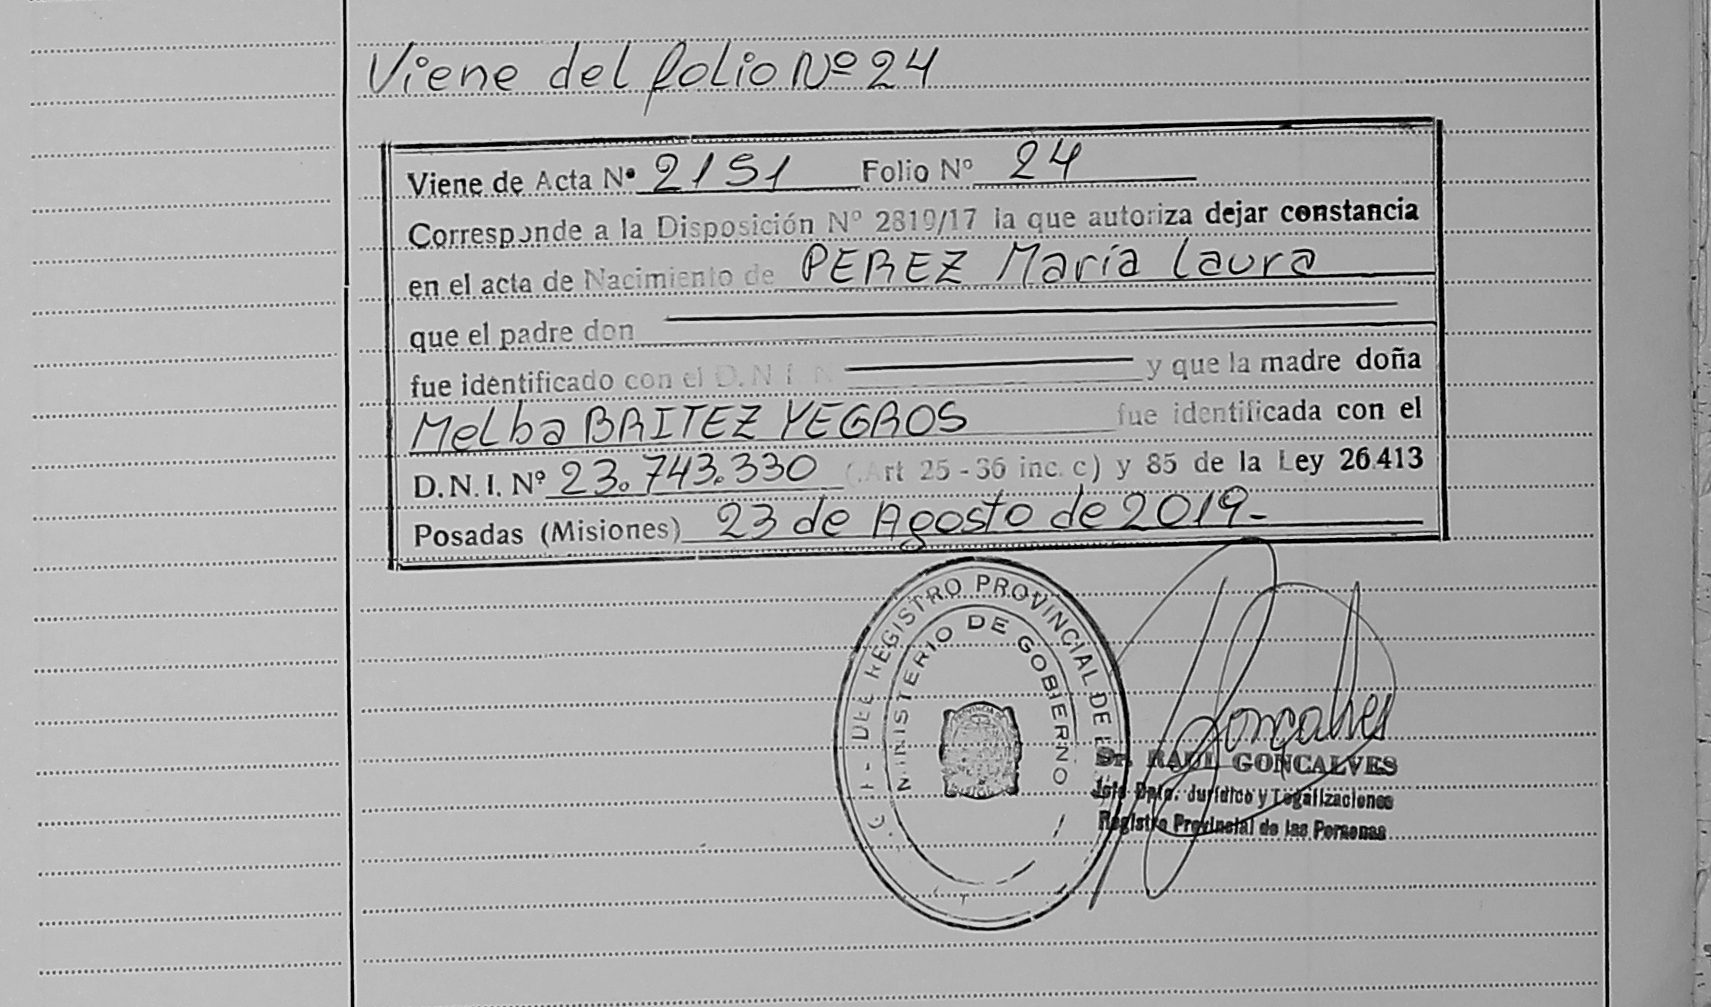 Viene del folio Nº 24
Viene de Acta Nº 2151 Folio Nº 24
Corresponde a la Disposición Nº 2819/17 la que autoriza dejar constancia
en el acta de Nacimiento de PEREZ María Laura
que el padre don
fue identificado con el D.N.I. N y que la madre doña
Melba BRITEZ YEGROS fue identificada con el
D.N.I. Nº 23.743.330 (Art 25 - 36 inc. c) y 85 de la Ley 26.413
Posadas (Misiones) 23 de Agosto de 2019.-
DEL REGISTRO PROVINCIAL DE
MINISTERIO DE GOBIERNO
Gonçalves
Dr. RAUL GONÇALVES
Jefe Dpto. Jurídico y Legalizaciones
Registro Provincial de las Personas